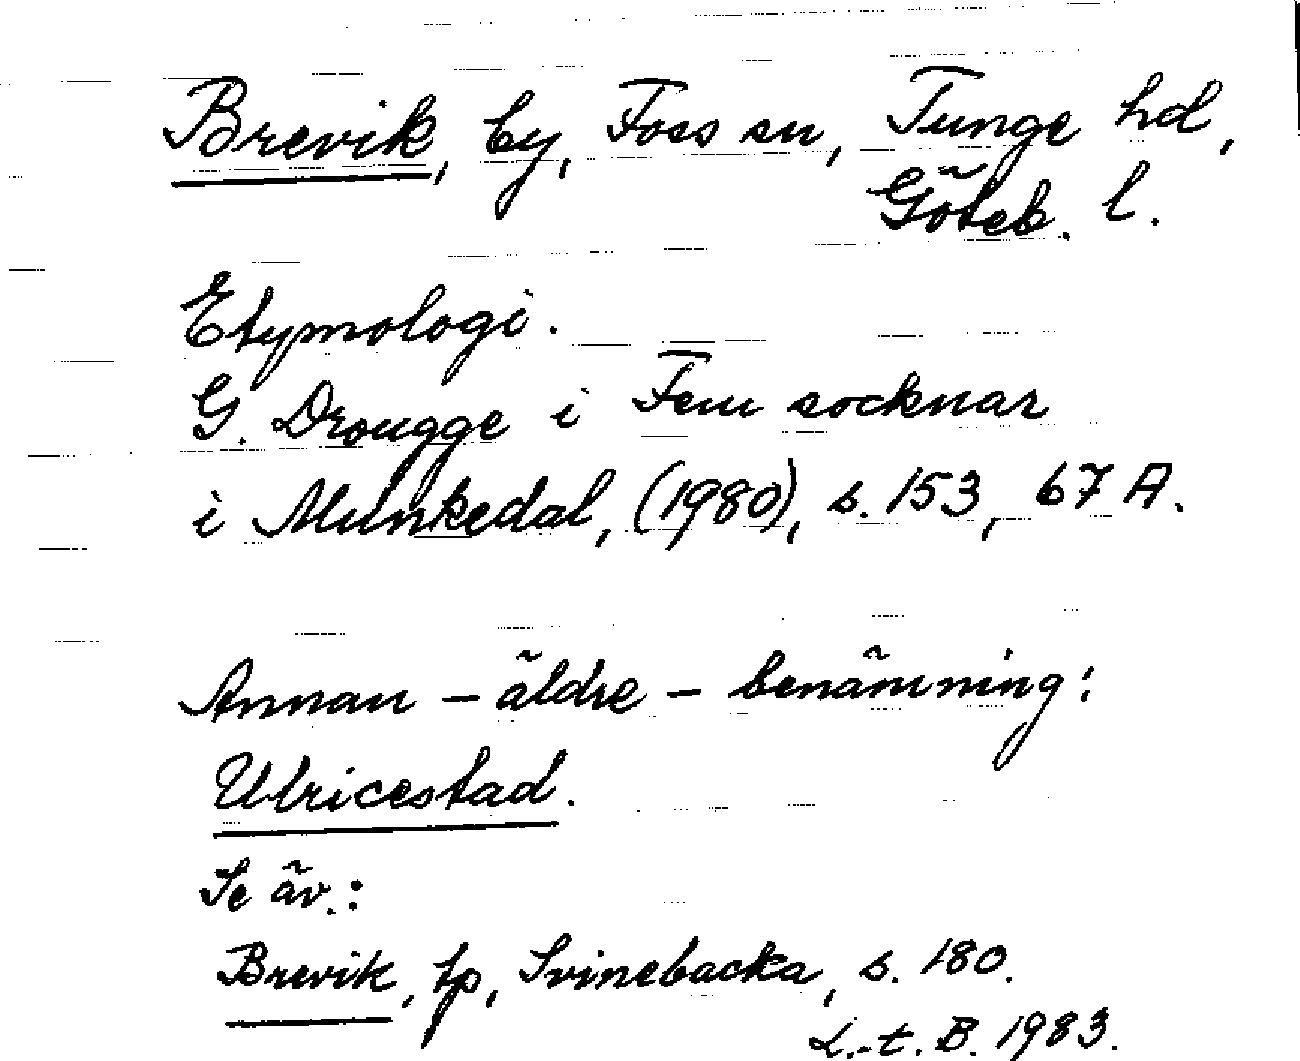 Brevik, by, Foss sn, Tunge hd,
Göteb. l.
Etymologi.
G. Drougge i Fem socknar
i Munkedal, (1980), s. 153, 67 A.
Annan – äldre – benämning:
Ulricestad.
Se äv.:
Brevik, tp, Svinebacka, s. 180.
L.-t. B. 1983.